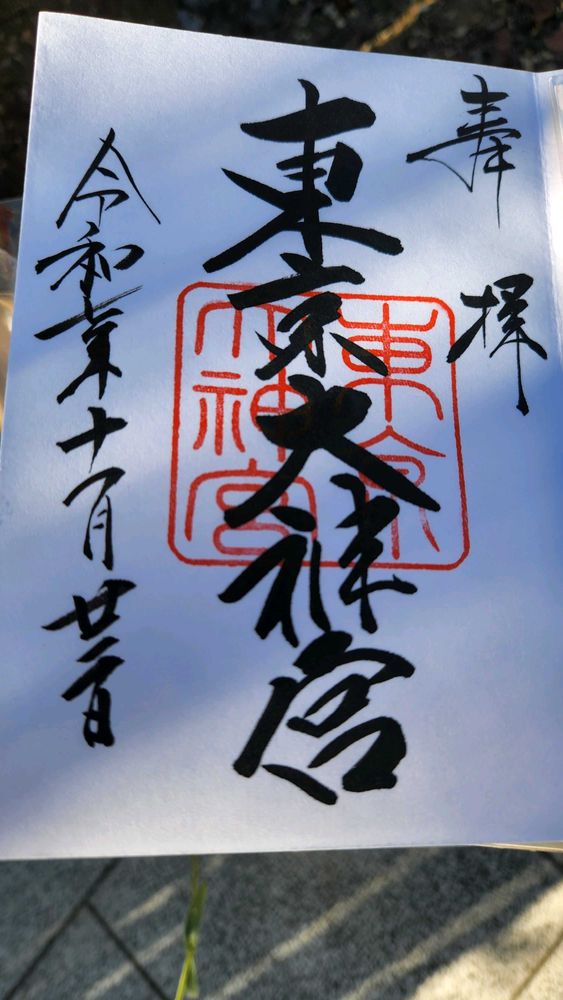 奉拝
東京大神宮
東京
大神宮
令和七年十一月廿二日